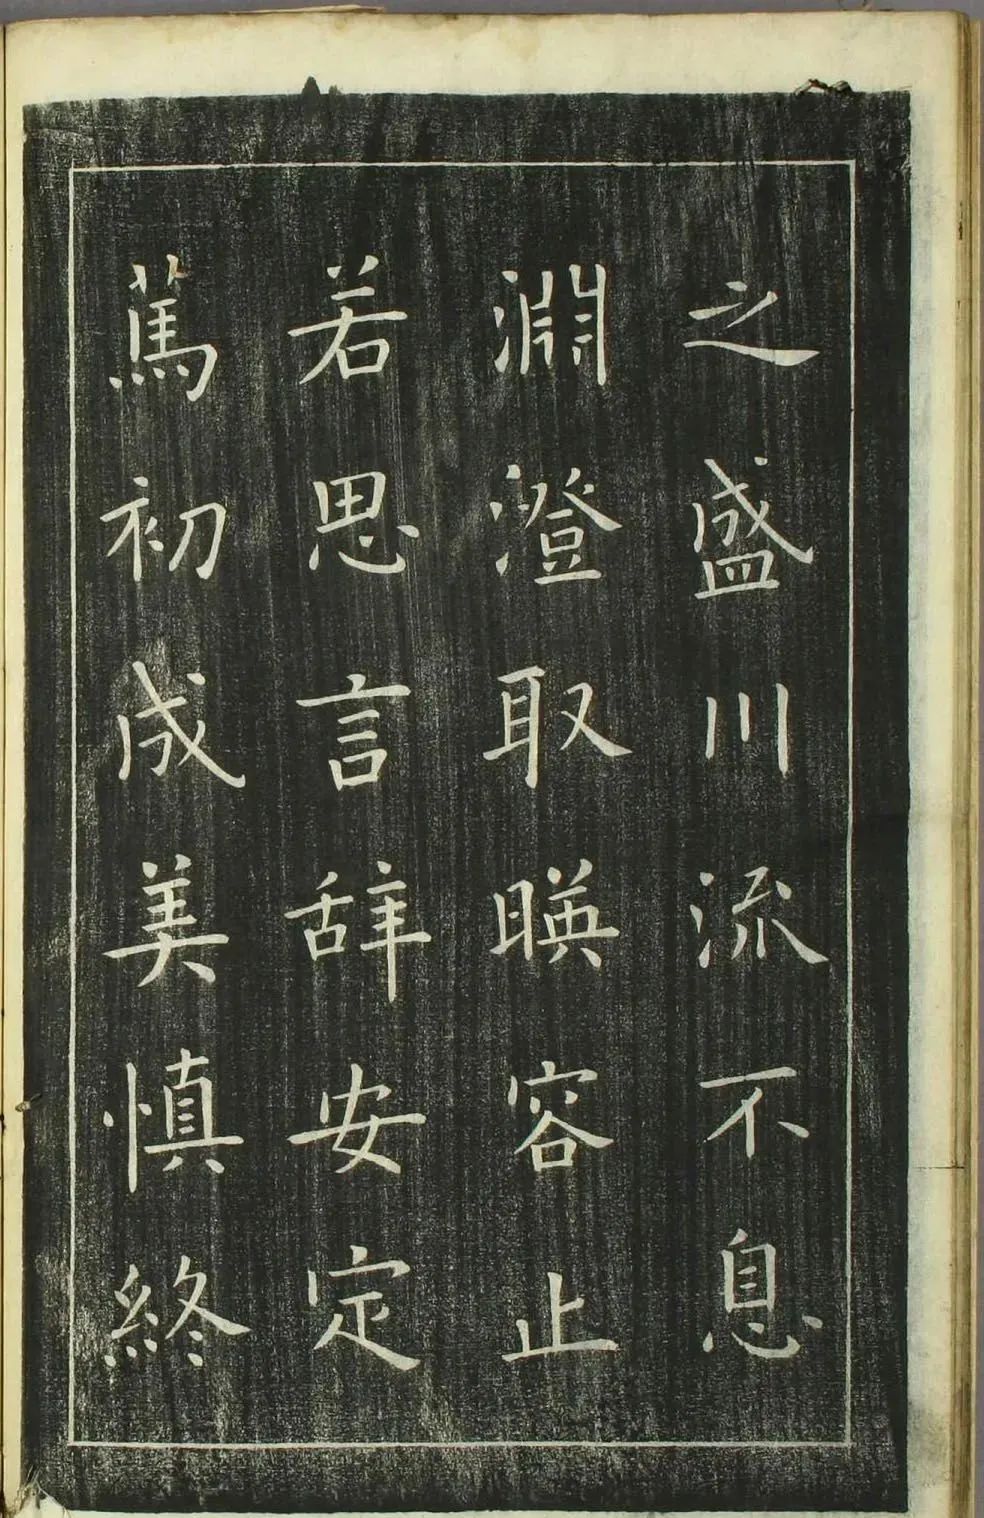 之盛川流不息
淵澄取暎容止
若思言辞安定
篤初成美慎終